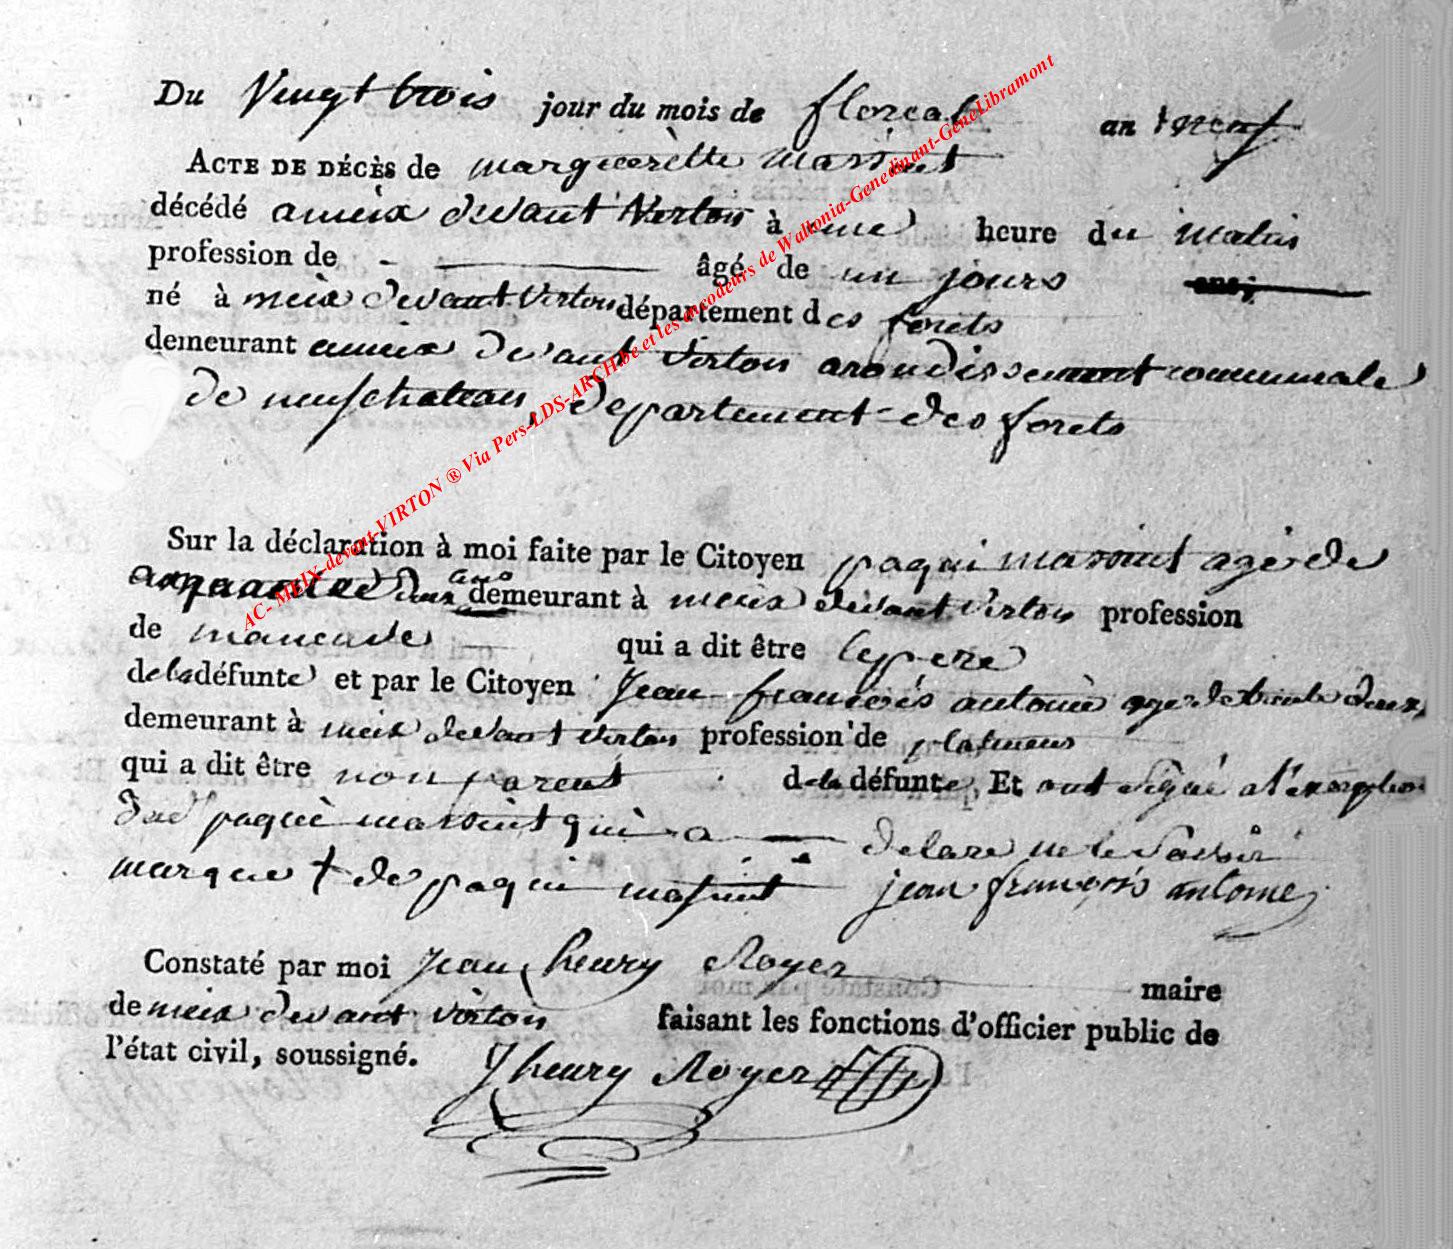 Du Vingt trois jour du mois de floreal an neuf
ACTE DE DÉCÈS de marguerette massint
décédé a meix devant Virton à une heure du matin
profession de - âgé de un jours ans;
né à meix devant Virton département des forets
demeurant a meix devant Virton arondissement communale
de neufchateau, departement des forets
Sur la déclaration à moi faite par le Citoyen paqui massint agé de
deux ans demeurant à meix devant virton profession
de qui a dit être le pere
de la défunte et par le Citoyen Jean françois antoine age de trente deux
demeurant à meix devant virton profession de
qui a dit être non parent de la défunte. Et ont signé a l'exception
dud paquè massint qui a delaré ne le savoir
marque + de paqui massint jean françois antoine
Constaté par moi Jean henry Royer maire
de meix devant virton faisant les fonctions d'officier public de
l'état civil, soussigné. J henry Royer
AC- MEIX-devant-VIRTON ® Via Pers-LDS-ARCH.be et les encodeurs de Wallonia-Genedinant-GeneLibramont